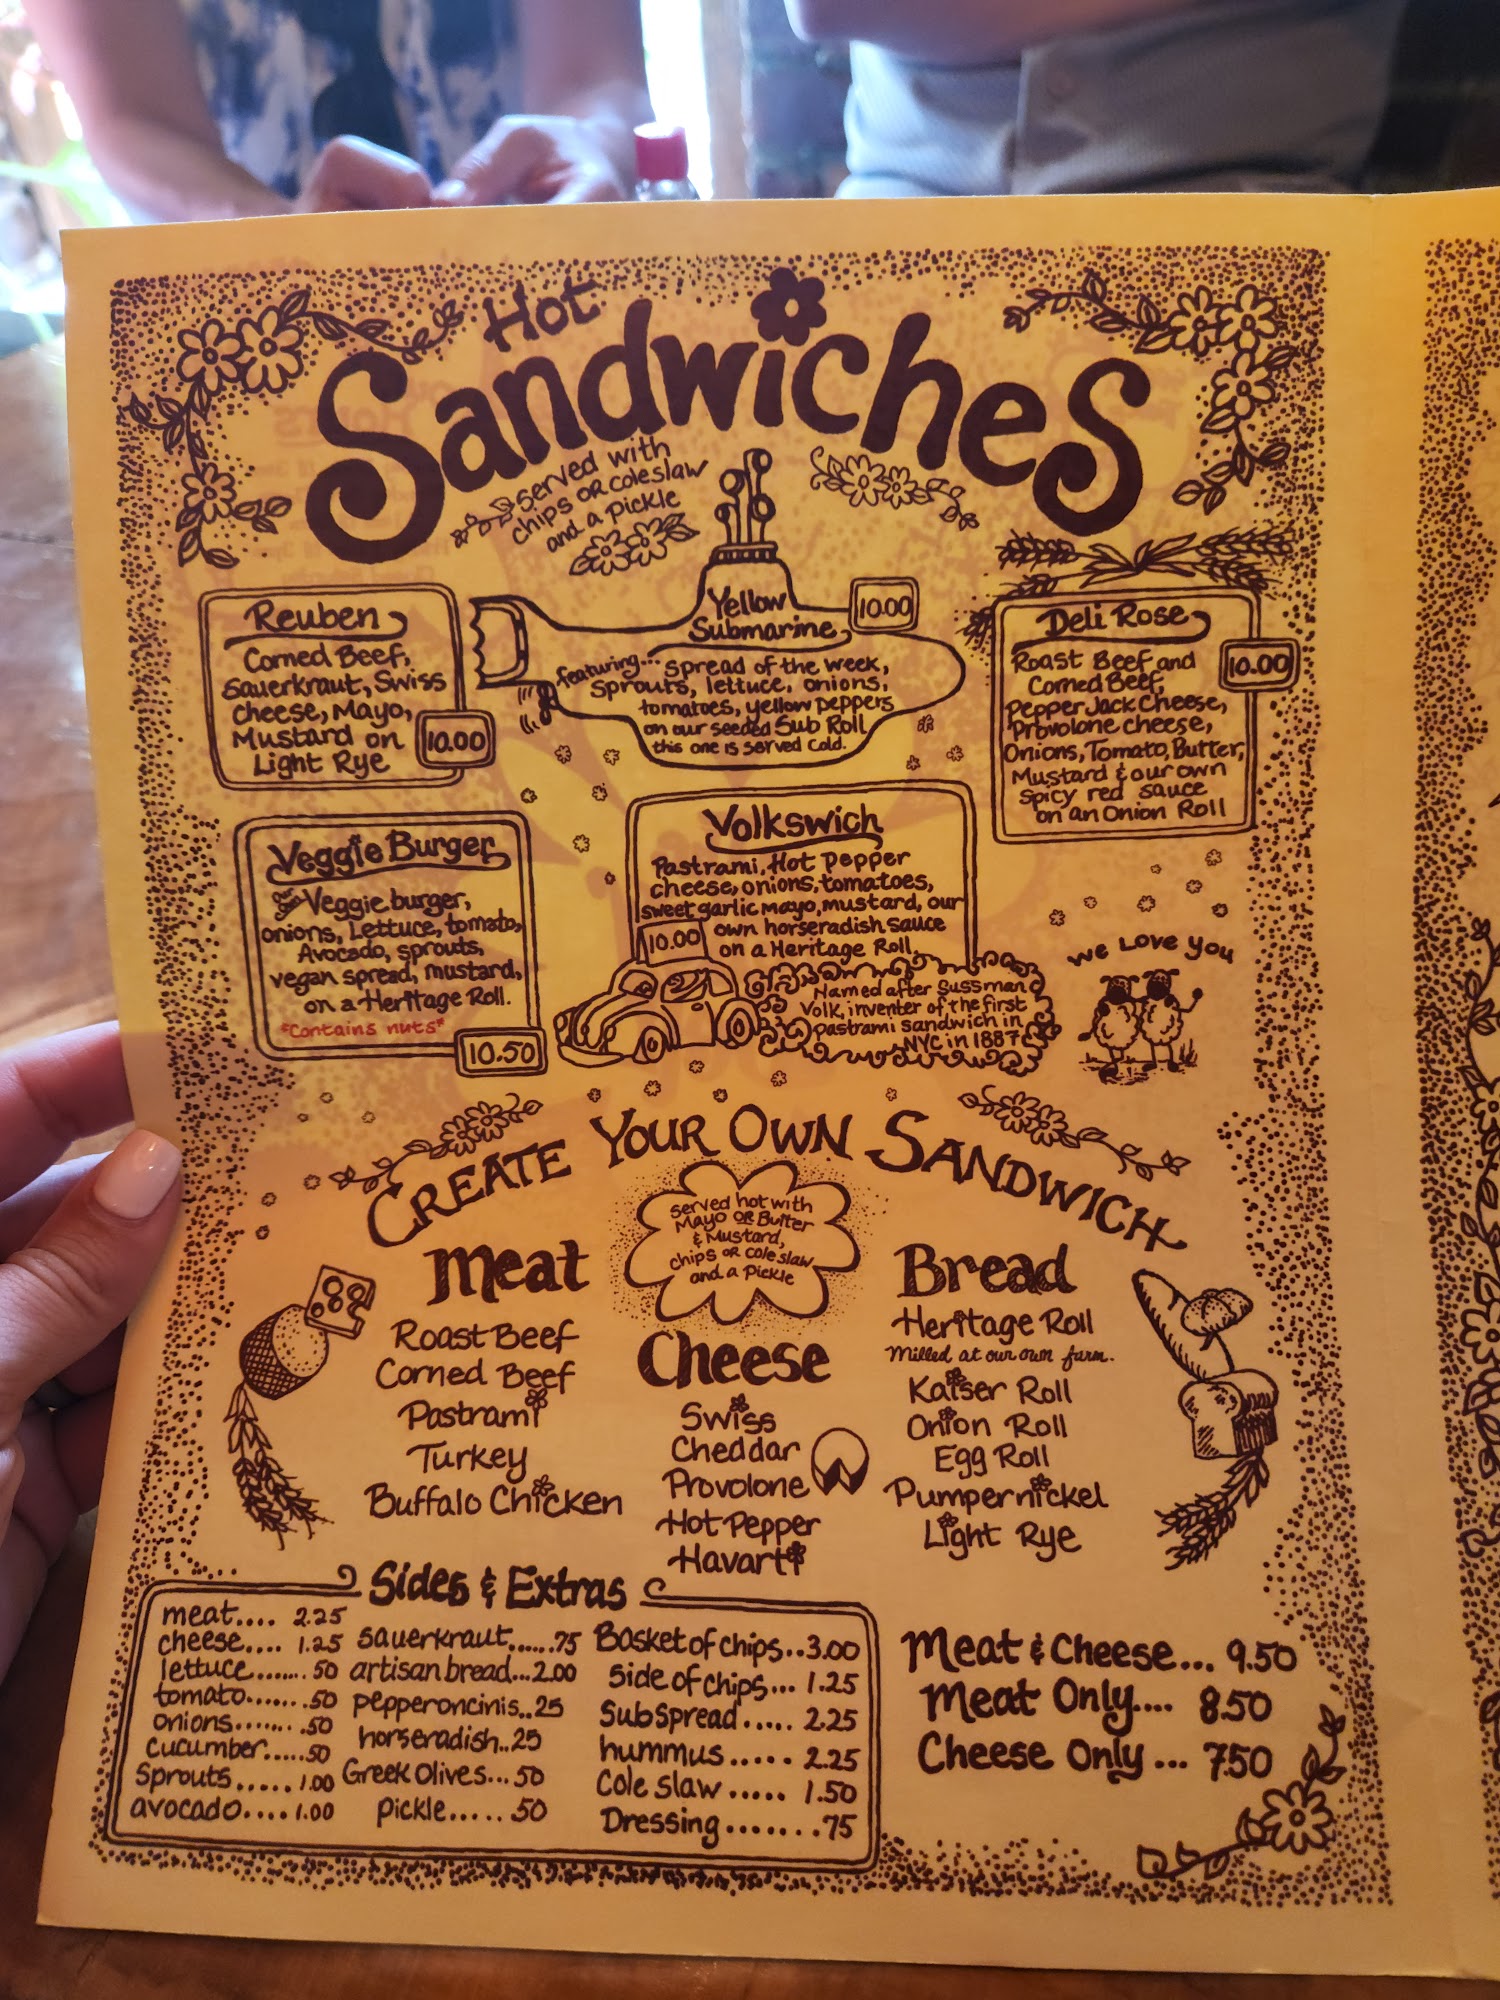 Hot
Sandwiches
served with
chips or coleslaw
and a pickle
Reuben
Corned Beef,
Sauerkraut, Swiss
Cheese, Mayo,
Mustard on
Light Rye
10.00
Yellow
Submarine
10.00
featuring... spread of the week,
sprouts, lettuce, onions,
tomatoes, yellow peppers
on our seeded Sub Roll
this one is served cold.
Deli Rose
10.00
Roast Beef and
Corned Beef,
Pepper Jack Cheese,
Provolone cheese,
Onions, Tomato, Butter,
Mustard & our own
spicy red sauce
on an Onion Roll
Veggie Burger
Veggie burger,
onions, Lettuce, tomato,
Avocado, sprouts,
vegan spread, mustard,
on a Heritage Roll.
*Contains nuts*
10.50
Volkswich
Pastrami, Hot Pepper
cheese, onions, tomatoes,
sweet garlic mayo, mustard, our
own horseradish sauce
on a Heritage Roll.
10.00
Named after Sussman
Volk, inventer of the first
pastrami sandwich in
NYC in 1887
We Love You
Create Your Own Sandwich
served hot with
Mayo or Butter
& Mustard,
chips or cole slaw
and a pickle
Meat
Roast Beef
Corned Beef
Pastrami
Turkey
Buffalo Chicken
Cheese
Swiss
Cheddar
Provolone
Hot Pepper
Havarti
Bread
Heritage Roll
Milled at our own farm.
Kaiser Roll
Onion Roll
Egg Roll
Pumpernickel
Light Rye
Sides & Extras
meat.... 2.25
cheese.... 1.25
lettuce....... .50
tomato....... .50
onions....... .50
cucumber.....50
Sprouts..... 1.00
avocado.... 1.00
sauerkraut......75
artisan bread...2.00
pepperoncinis..25
horseradish..25
Greek Olives...50
pickle..... 50
Basket of chips...3.00
side of chips... 1.25
Sub Spread..... 2.25
hummus..... 2.25
Cole slaw ..... 1.50
Dressing........75
Meat & Cheese... 9.50
Meat Only.... 8.50
Cheese Only ... 7.50